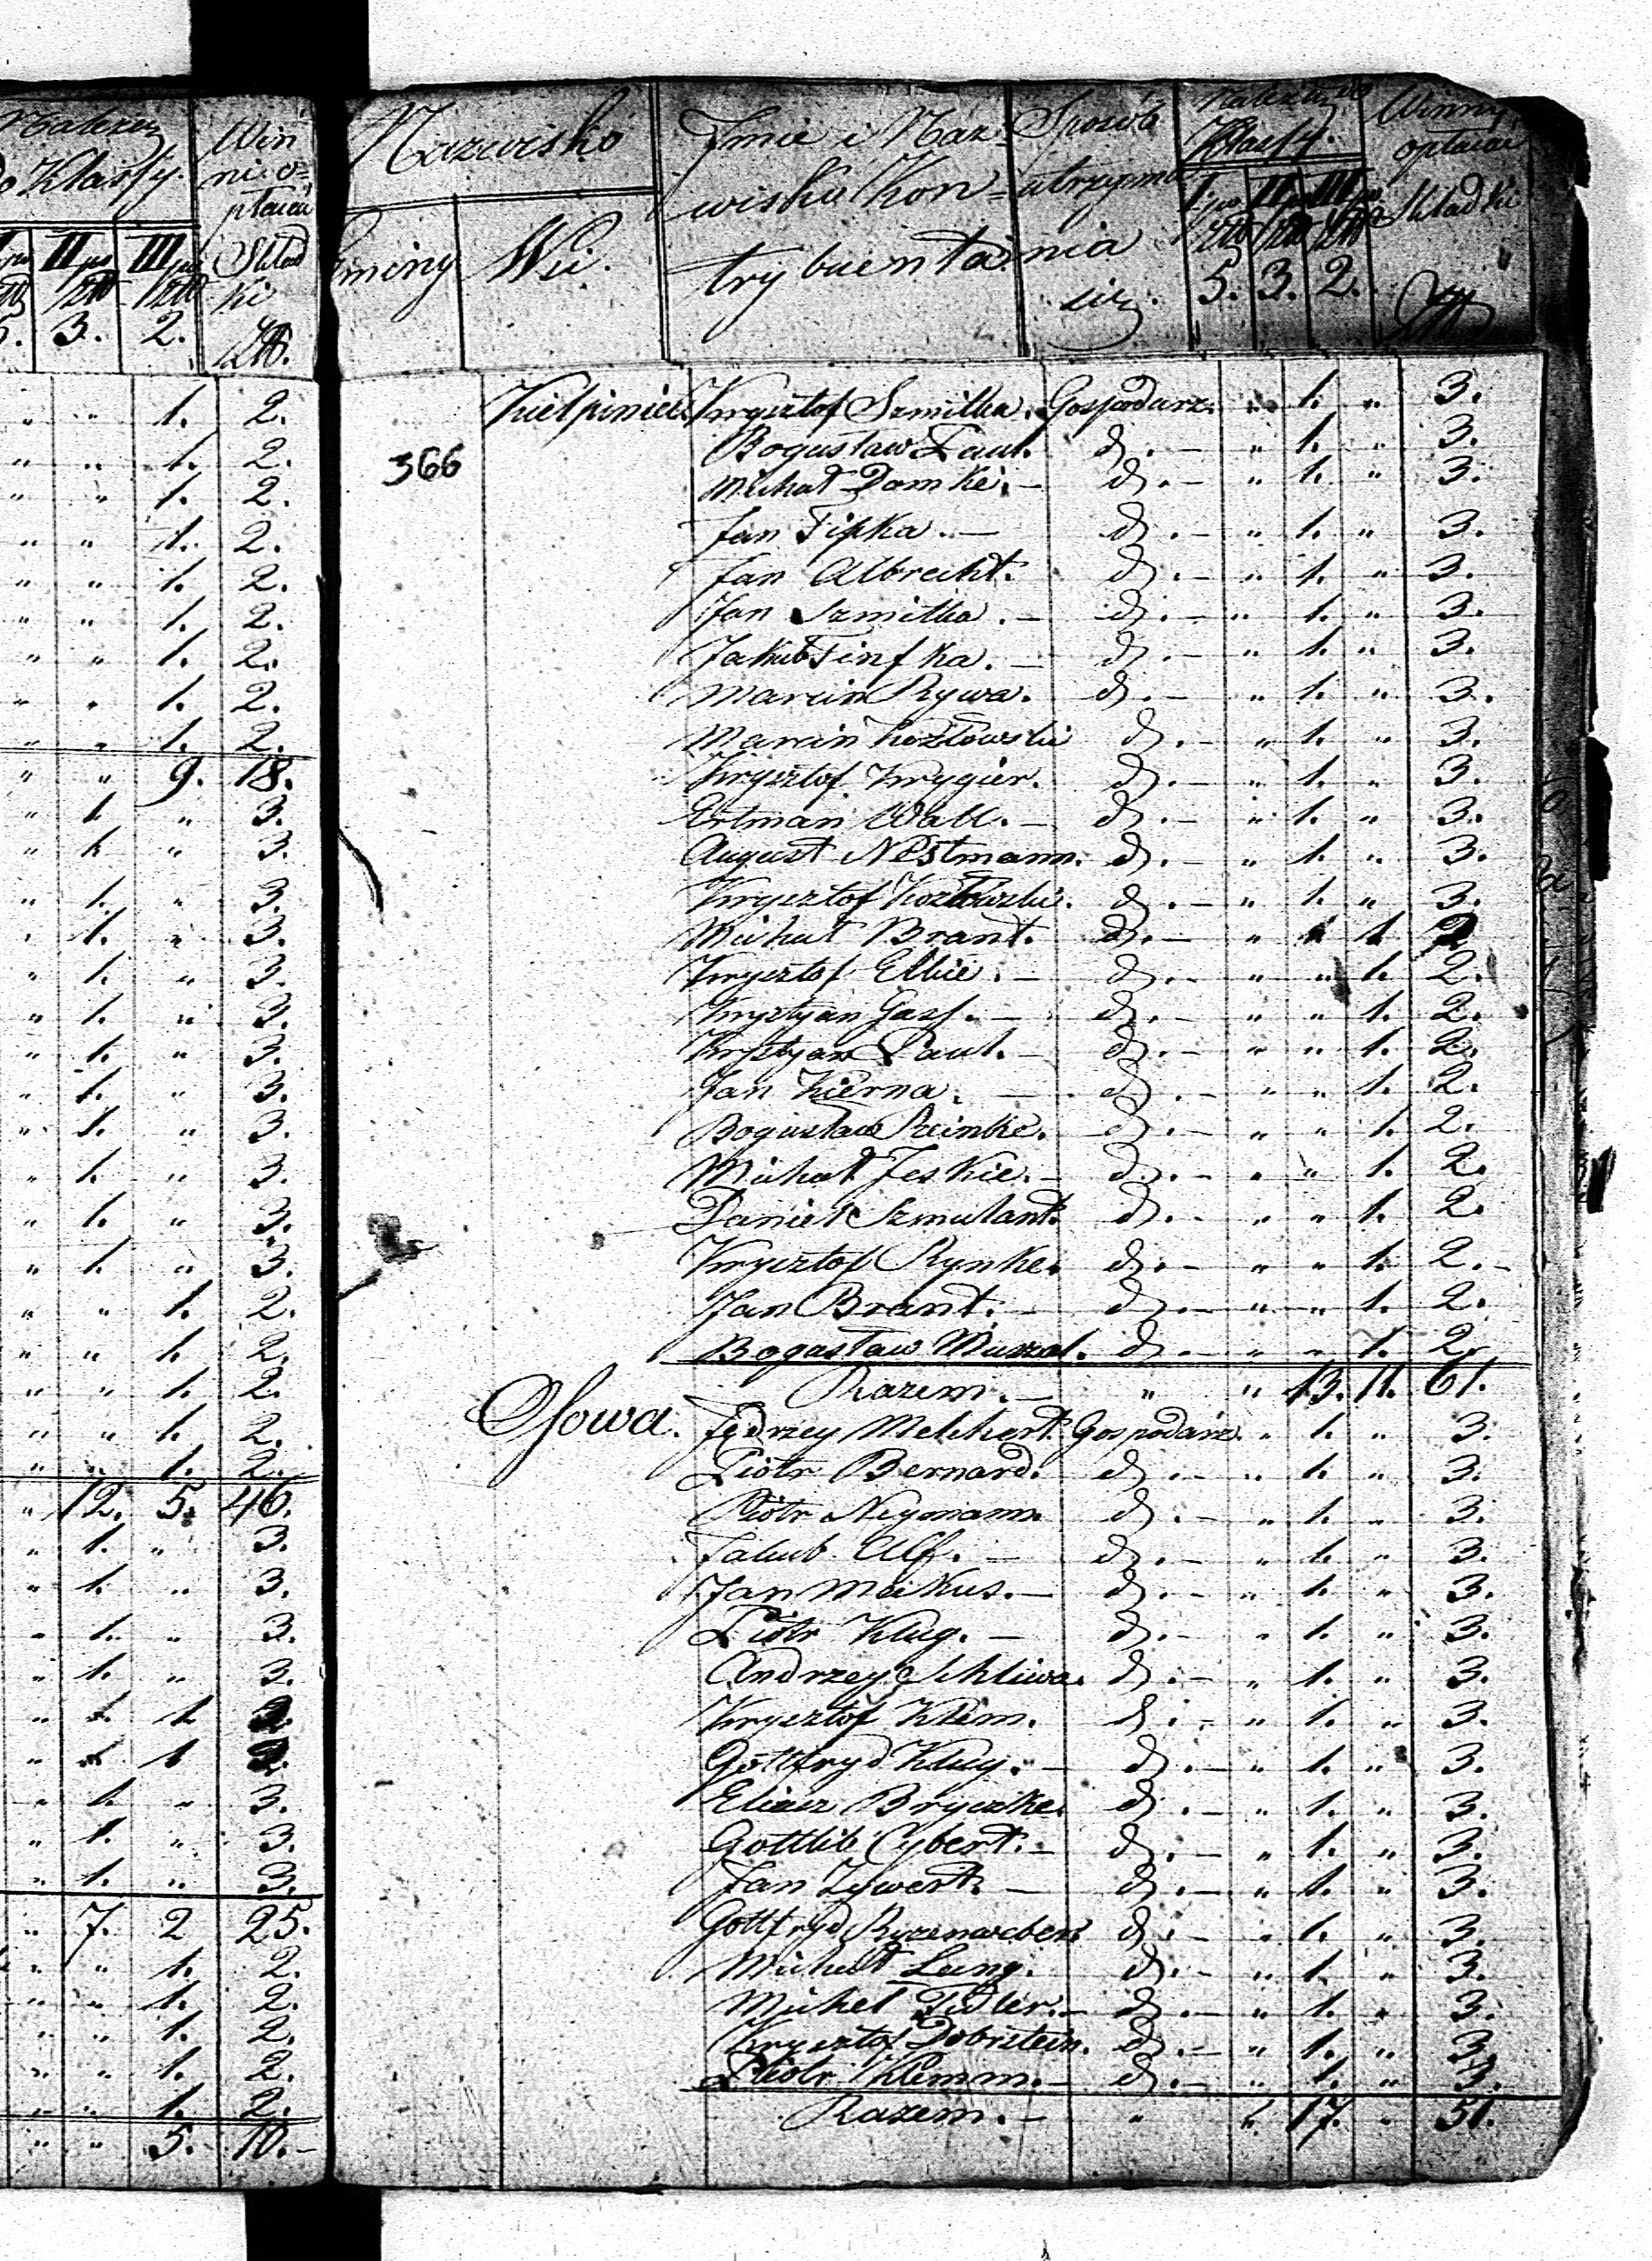 Należą
do Klassy.
Win
ni o=
płacić
Skład
ki
złt.
I po
złt
5.
II po
złt
3.
III po
złt
2.
" " 1. 2.
" " 1. 2.
" " 1. 2.
" " 1. 2.
" " 1. 2.
" " 1. 2.
" " 1. 2.
" " 1. 2.
" " 1. 2.
" " 9. 18.
" 1. " 3.
" 1. " 3.
" 1. " 3.
" 1. " 3.
" 1. " 3.
" 1. " 3.
" 1. " 3.
" 1. " 3.
" 1. " 3.
" 1. " 3.
" 1. " 3.
" 1. " 3.
" " 1. 2.
" " 1. 2.
" " 1. 2.
" " 1. 2.
" " 1. 2.
" 12. 5. 46.
" 1. " 3.
" 1. " 3.
" 1. " 3.
" 1. " 3.
" 1 2
" 1 2
" 1. " 3.
" 1. " 3.
" 1. " 3.
" 7. 2 25.
" " 1. 2.
" " 1. 2.
" " 1. 2.
" " 1. 2.
" " 1. 2.
" " 5. 10.-
Nazwisko
Gminy Wsi.
Imie i Naz=
wisko Kon=
trybuenta
Sposób
utrzyma
nia
się.
Należą do
Klassy.
I po
złt
5.
II po
złt
3.
III po
złt
2.
Winny
opłacać
Składki
złt
366
Kiełpiniec. Krysztof Szmitka. Gospodarz. " 1. " 3.
Bogusław Paul. d. - " 1. " 3.
Michał Domke. - d. - " 1. " 3.
Jan Fipka. - d. - " 1. " 3.
Jan Albrecht. d. - " 1. " 3.
Jan Szmitka. - d. - " 1. " 3.
Jakub Finfka. - d. - " 1. " 3.
Marcin Rywa. d. - " 1. " 3.
Marcin Kozłowski d. - " 1. " 3.
Krysztof Krygier. d. - " 1. " 3.
Ertman Wall. - d. - " 1. " 3.
August Nestmann. d. - " 1. " 3.
Krysztof Kozłowski. d. - " 1. " 3.
Michał Brant. d. - " 1. 2
Krysztof Elkie. - d. - " " 1. 2.
Krystyan Gass. - d. - " " 1. 2.
Krystyan Paul. - d. - " " 1. 2.
Jan Kierna. - d. - " " 1. 2.
Bogusław Reinke. d. - " " 1. 2.
Michał Jeskie. - d. - " " 1. 2.
Daniel Szmulant. d. - " " 1. 2.
Krysztof Rynke. d. - " " 1. 2.-
Jan Brant. - d. - " " 1. 2.
Bogusław Muszal. d. - " " 1. 2.
Razem. - " " 13. 11. 61.
Osowa. Jędrzey Melchert. Gospodarz. " 1. " 3.
Piotr Bernard. d. - " 1. " 3.
Piotr Neymann. d. - " 1. " 3.
Jakub Ulf. - d. - " 1. " 3.
Jan Maikus. - d. - " 1. " 3.
Piotr Klug. - d. - " 1. " 3.
Andrzey Schliwa. d. - " 1. " 3.
Krysztof Klem. d. - " 1. " 3.
Gottfryd Klug. - d. - " 1. " 3.
Eliasz Bryszke. d. - " 1. " 3.
Gottlib Cybert. - d. - " 1. " 3.
Jan Zywert. - d. - " 1. " 3.
Gottfryd d. - " 1. " 3.
Michał Lang. d. - " 1. " 3.
Michel Fidler. - d. - " 1. " 3.
Krysztof Dobrstein. d. - " 1. " 3.
Piotr Klemm. - d. - " 1. " 3.
Razem. - " " 17. " 51.